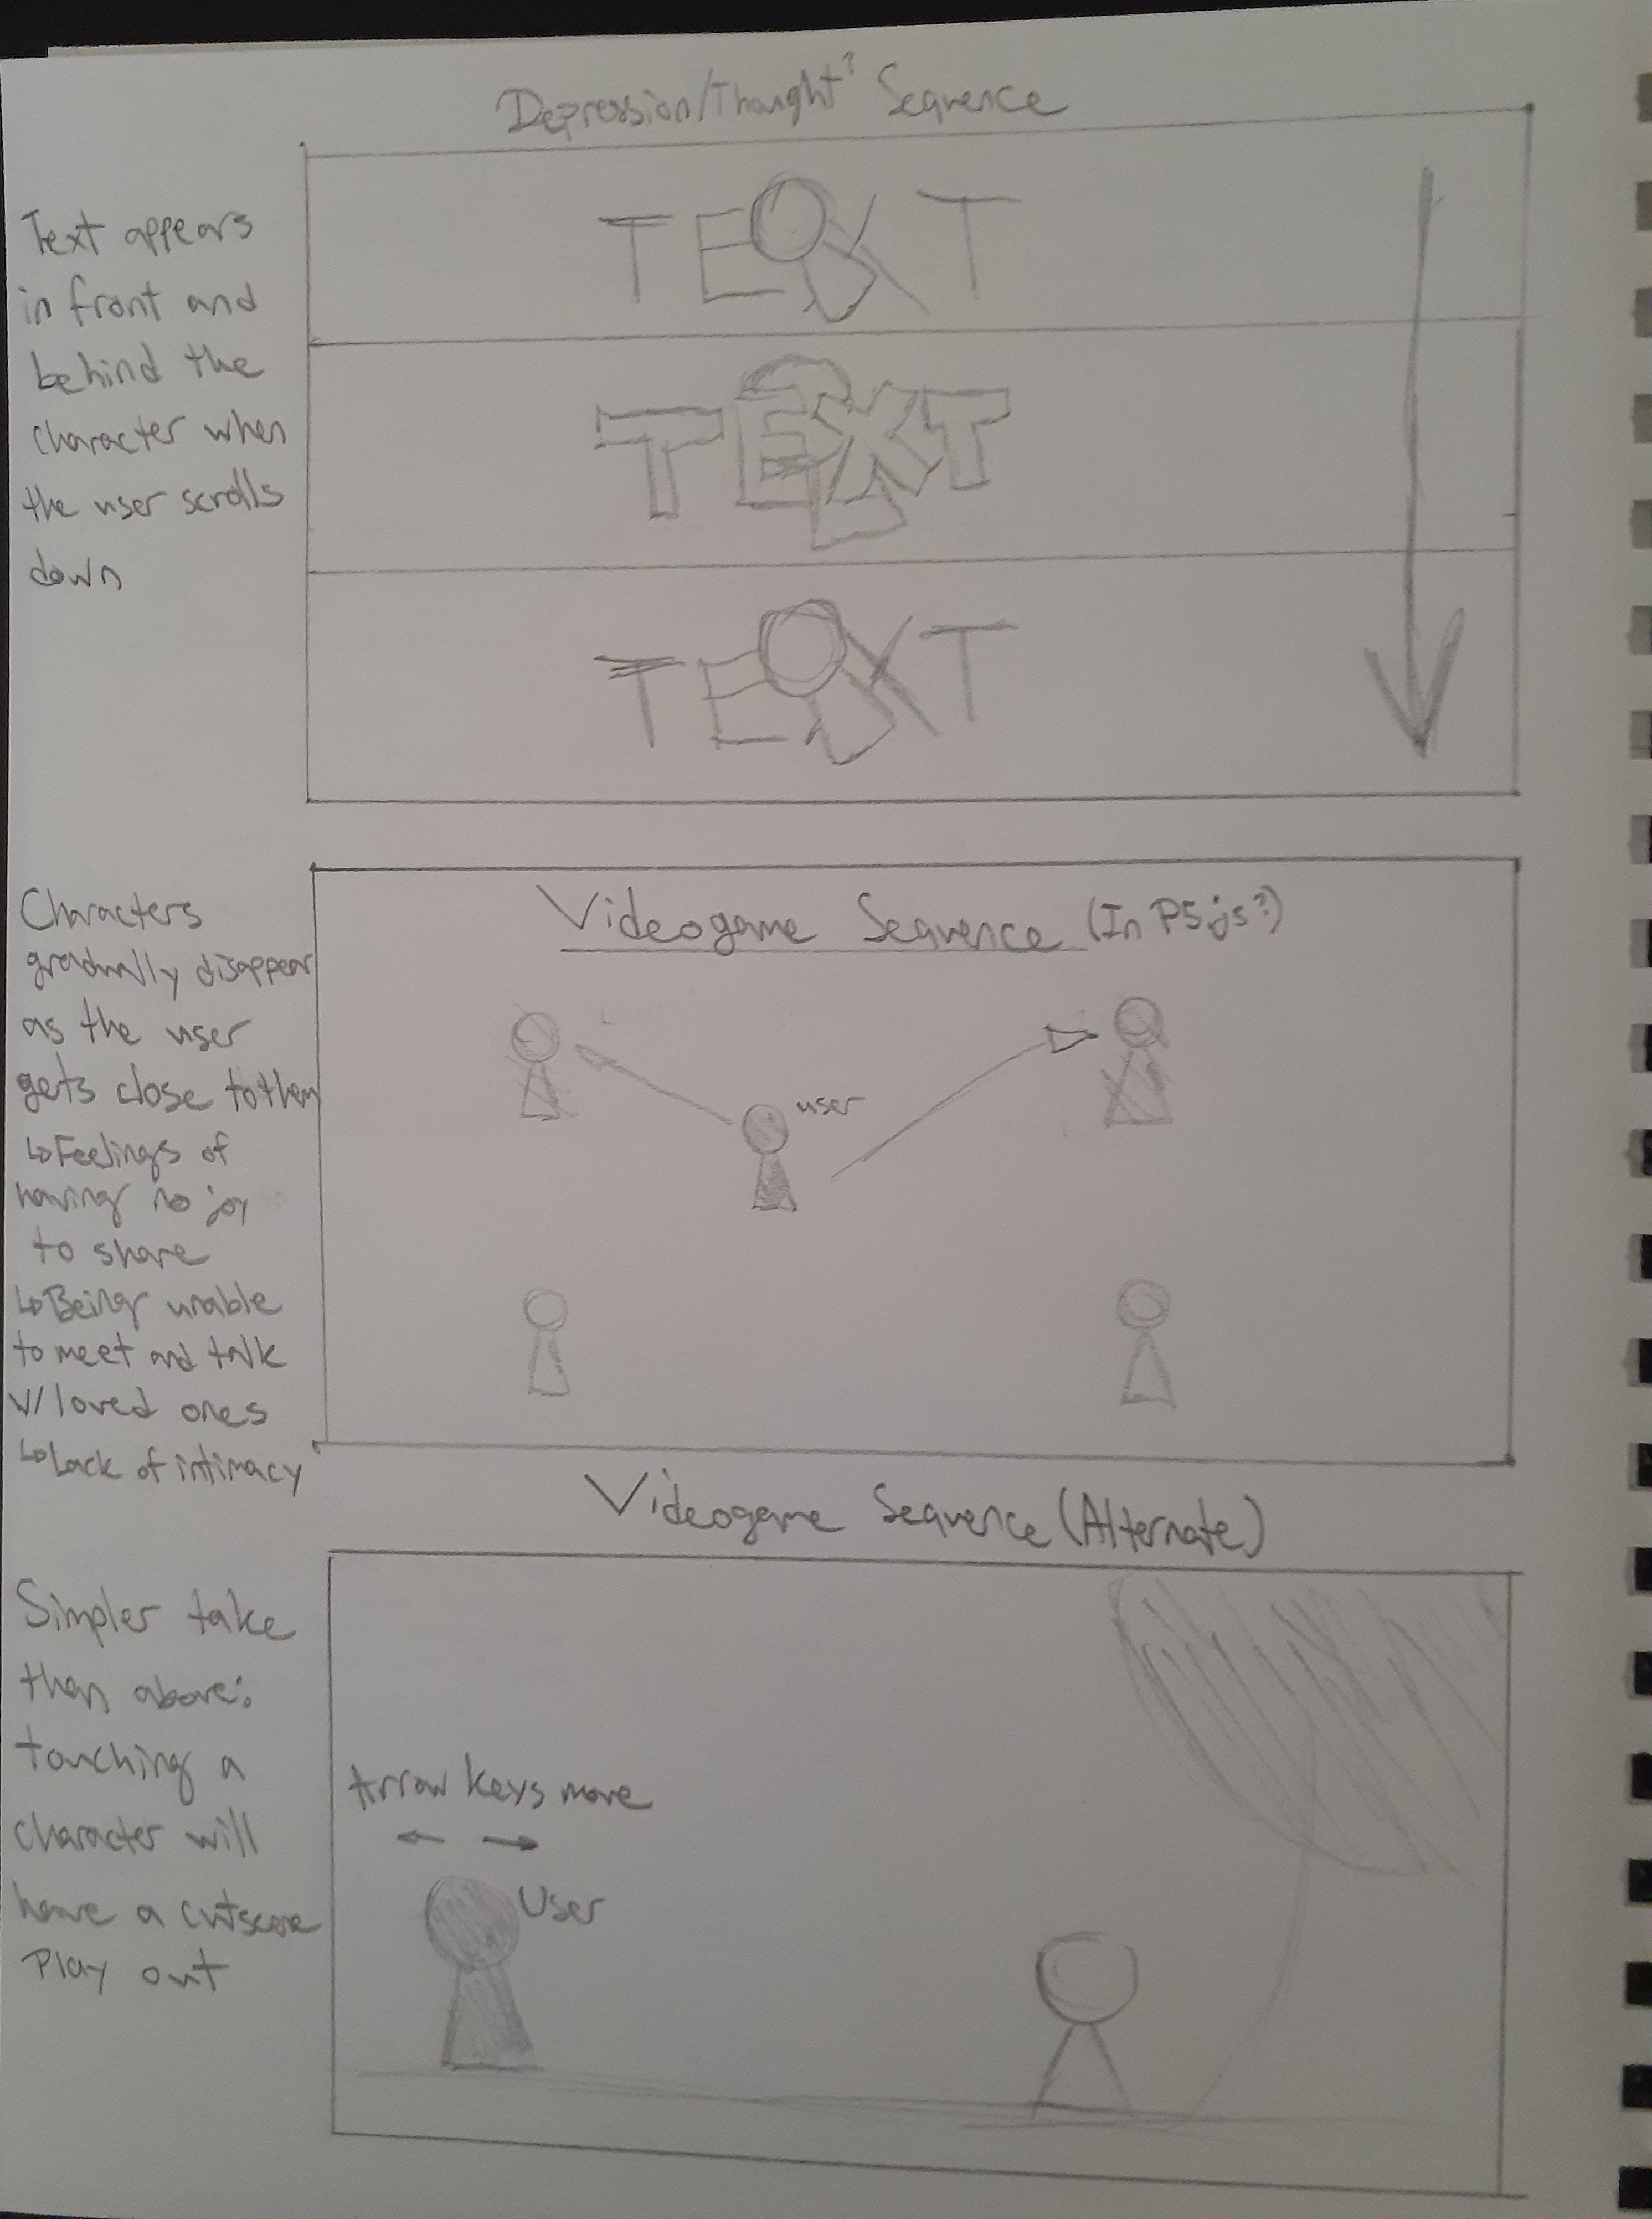 Depression/Thought? Sequence
Text appears
in front and
behind the
character when
the user scrolls
down
TEXT
TEXT
TEXT
Characters
gradually disappear
as the user
gets close to them
↳Feelings of
having no joy
to share
↳Being unable
to meet and talk
w/ loved ones
↳Lack of intimacy
Videogame Sequence (In P5.js?)
user
Videogame Sequence (Alternate)
Simpler take
than above:
touching a
character will
have a cutscene
Play out
Arrow keys move
← →
User